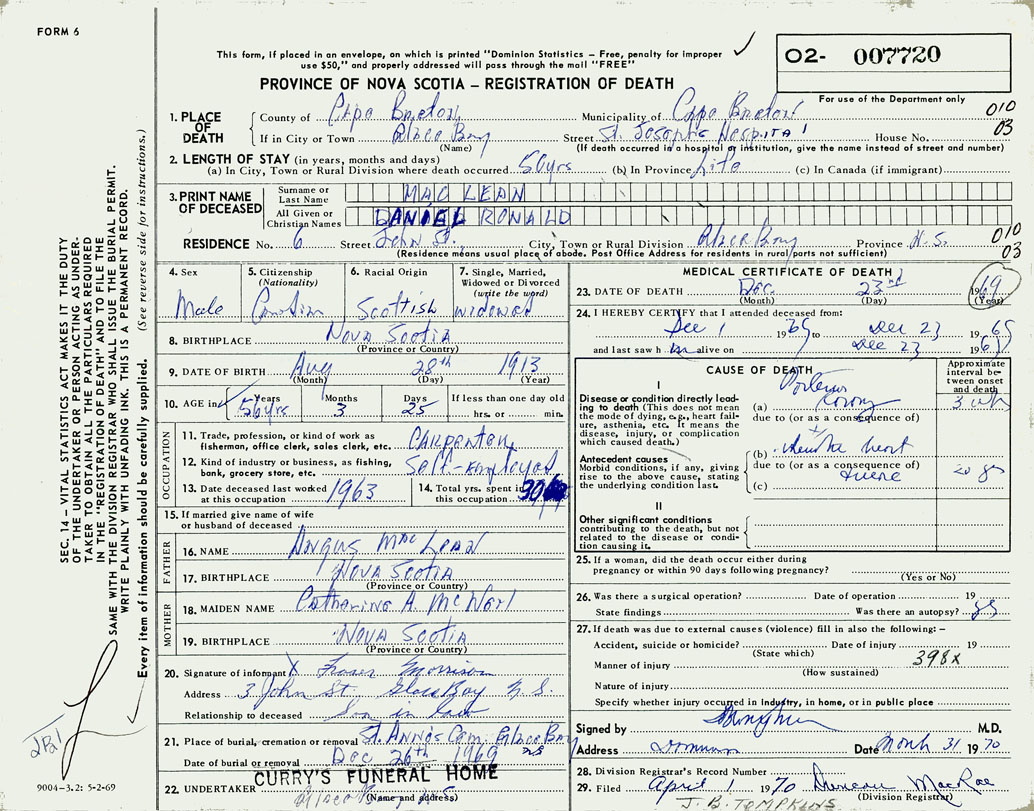 FORM 6
This form, if placed in an envelope, on which is printed "Dominion Statistics – Free, penalty for improper
use $50," and properly addressed will pass through the mail "FREE"
O2- 007720
PROVINCE OF NOVA SCOTIA – REGISTRATION OF DEATH
For use of the Department only
1. PLACE OF DEATH
County of Cape Breton Municipality of Cape Breton 010
If in City or Town Glace Bay Street St. Joseph's Hospital House No. 03
(Name) (If death occurred in a hospital or institution, give the name instead of street and number)
2. LENGTH OF STAY (in years, months and days)
(a) In City, Town or Rural Division where death occurred 56 yrs (b) In Province Life (c) In Canada (if immigrant)
3. PRINT NAME OF DECEASED
Surname or Last Name MAC LEAN
All Given or Christian Names DANIEL RONALD
RESIDENCE No. 6 Street John St., City, Town or Rural Division Glace Bay Province N.S. 010
(Residence means usual place of abode. Post Office Address for residents in rural parts not sufficient) 03
4. Sex Male
5. Citizenship (Nationality) Canadian
6. Racial Origin Scottish
7. Single, Married, Widowed or Divorced (write the word) widowed
8. BIRTHPLACE Nova Scotia
(Province or Country)
9. DATE OF BIRTH Aug 28th 1913
(Month) (Day) (Year)
10. AGE in Years 56 yrs Months 3 Days 25 If less than one day old hrs. or min.
OCCUPATION
11. Trade, profession, or kind of work as fisherman, office clerk, sales clerk, etc. Carpenter
12. Kind of industry or business, as fishing, bank, grocery store, etc. Self-employed
13. Date deceased last worked at this occupation 1963
14. Total yrs. spent in this occupation 30
15. If married give name of wife or husband of deceased
FATHER
16. NAME Angus MacLean
17. BIRTHPLACE Nova Scotia
(Province or Country)
MOTHER
18. MAIDEN NAME Catharine A. McNeil
19. BIRTHPLACE Nova Scotia
(Province or Country)
20. Signature of informant X Fraser Morrison
Address 3 John St. Glace Bay N.S.
Relationship to deceased Son in law
21. Place of burial, cremation or removal St. Anns Cem. Glace Bay
Date of burial or removal Dec 26th 1969 N.S.
22. UNDERTAKER CURRY'S FUNERAL HOME
Glace Bay N.S.
(Name and address)
MEDICAL CERTIFICATE OF DEATH
23. DATE OF DEATH Dec. 23rd 1969
(Month) (Day) (Year)
24. I HEREBY CERTIFY that I attended deceased from:
Dec 1 1969 to Dec 23 1969
and last saw h im alive on Dec 23 1969
CAUSE OF DEATH
Approximate interval between onset and death
I
Disease or condition directly leading to death (This does not mean the mode of dying, e.g., heart failure, asthenia, etc. It means the disease, injury, or complication which caused death.)
(a)
due to (or as a consequence of)
Antecedent causes
Morbid conditions, if any, giving rise to the above cause, stating the underlying condition last.
(b) heart
due to (or as a consequence of)
(c)
II
Other significant conditions
contributing to the death, but not related to the disease or condition causing it.
25. If a woman, did the death occur either during pregnancy or within 90 days following pregnancy?
(Yes or No)
26. Was there a surgical operation? Date of operation 19
State findings Was there an autopsy?
27. If death was due to external causes (violence) fill in also the following: –
Accident, suicide or homicide? Date of injury 19
(State which)
Manner of injury 398X
(How sustained)
Nature of injury
Specify whether injury occurred in industry, in home, or in public place
Signed by M.D.
Address Dominion Date March 31 1970
28. Division Registrar's Record Number
29. Filed April 1 1970 Duncan MacRae
(Division Registrar)
J. B. TOMPKINS
SEC. 14 – VITAL STATISTICS ACT MAKES IT THE DUTY
OF THE UNDERTAKER OR PERSON ACTING AS UNDER-
TAKER TO OBTAIN ALL THE PARTICULARS REQUIRED
IN THE "REGISTRATION OF DEATH" AND TO FILE THE
SAME WITH THE DIVISION REGISTRAR WHO SHALL ISSUE THE BURIAL PERMIT.
WRITE PLAINLY WITH UNFADING INK. THIS IS A PERMANENT RECORD.
Every item of information should be carefully supplied. (See reverse side for instructions.)
9004-3.2: 5-2-69